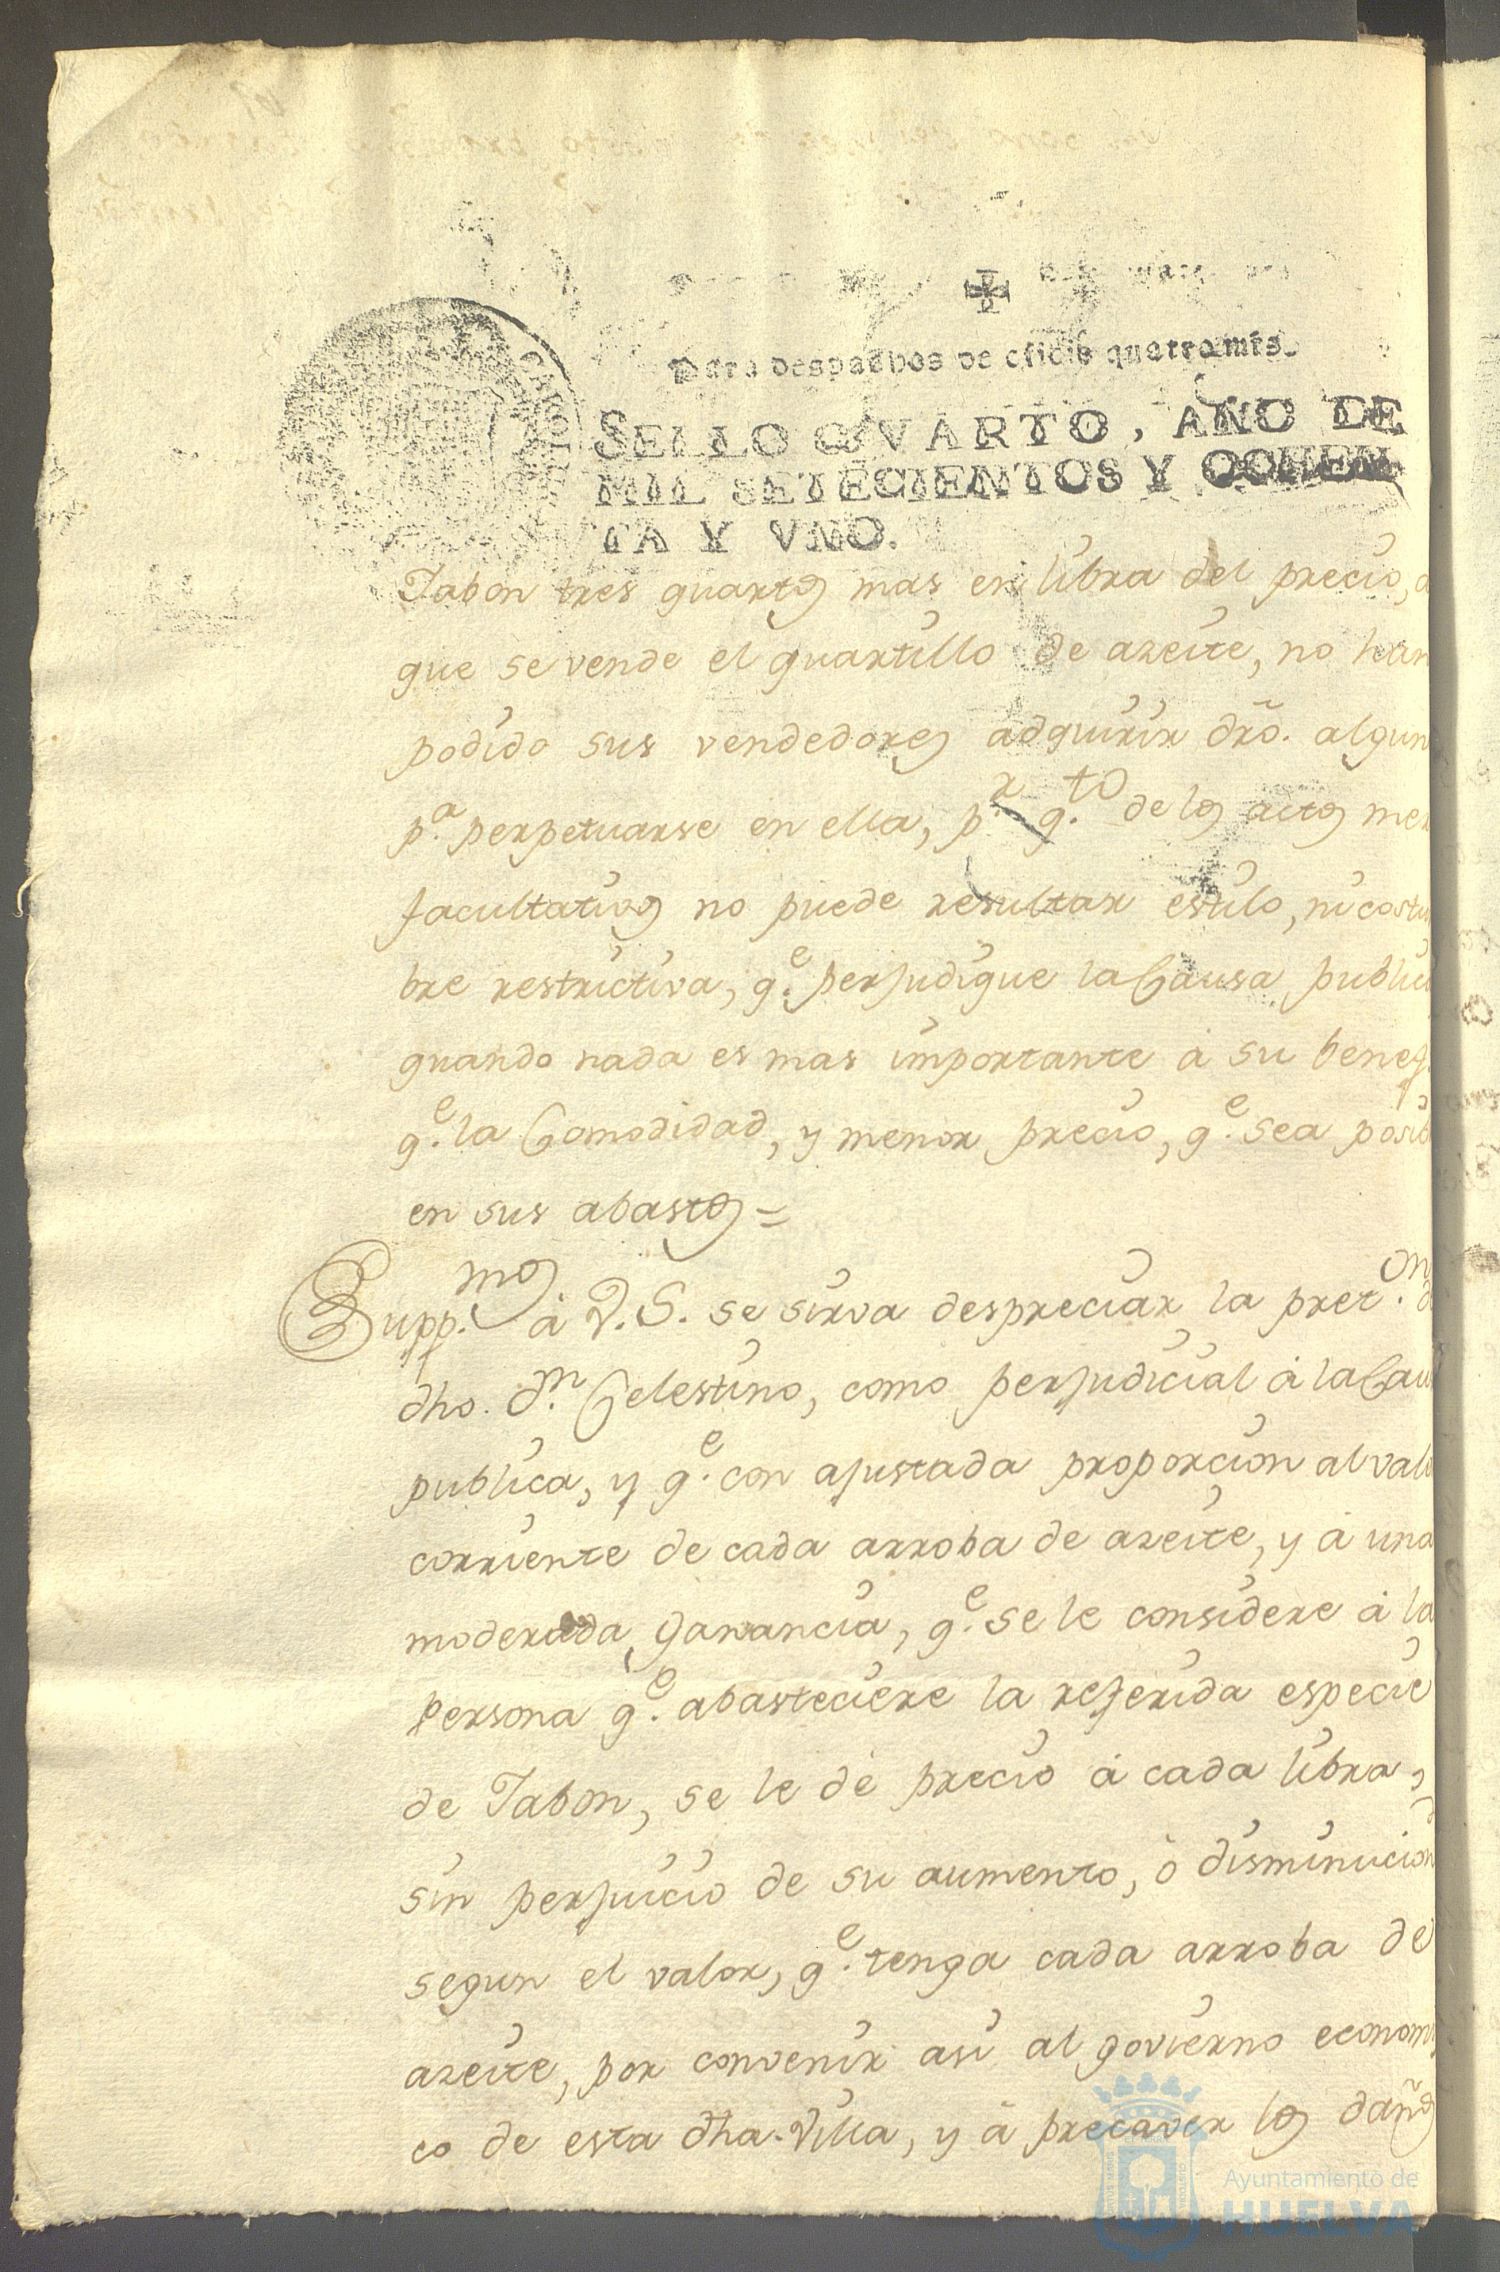 Para despachos de oficio quatro mrs.
SELLO QVARTO, AÑO DE
MIL SETECIENTOS Y OCHEN
TA Y VNO.
Jabon tres quartos mas en libra del precio, a
que se vende el quartillo de azeite, no han
podido sus vendedores adquirir dro. algun
p.a perpetuarse en ella, p.r q.to de los actos mer
facultativos no puede resultar estilo, ni costu
bre restrictiva, q.e perjudique la Causa public
quando nada es mas importante à su benef.
q.e la Comodidad, y menor precio, q.e sea posib
en sus abastos =
Supp.mos à V.S. se sirva despreciar la pret.on d
dho. d.n Celestino, como perjudicial à la Cau
publica, y q.e con ajustada proporcion al valo
corriente de cada arroba de azeite, y à una
moderada ganancia, q.e se le considere à la
persona q.e abasteciere la referida especie
de Jabon, se le dè precio à cada libra,
sin perjuicio de su aumento, ò disminucion
segun el valor, q.e tenga cada arroba de
azeite, por convenir asi al govierno economi
co de esta dha. Villa, y à precaver los daños
Ayuntamiento de
HUELVA